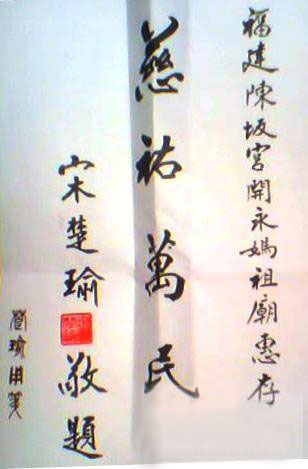 福建陳坂宮開永媽祖廟惠存
慈祐萬民
宋楚瑜 敬題